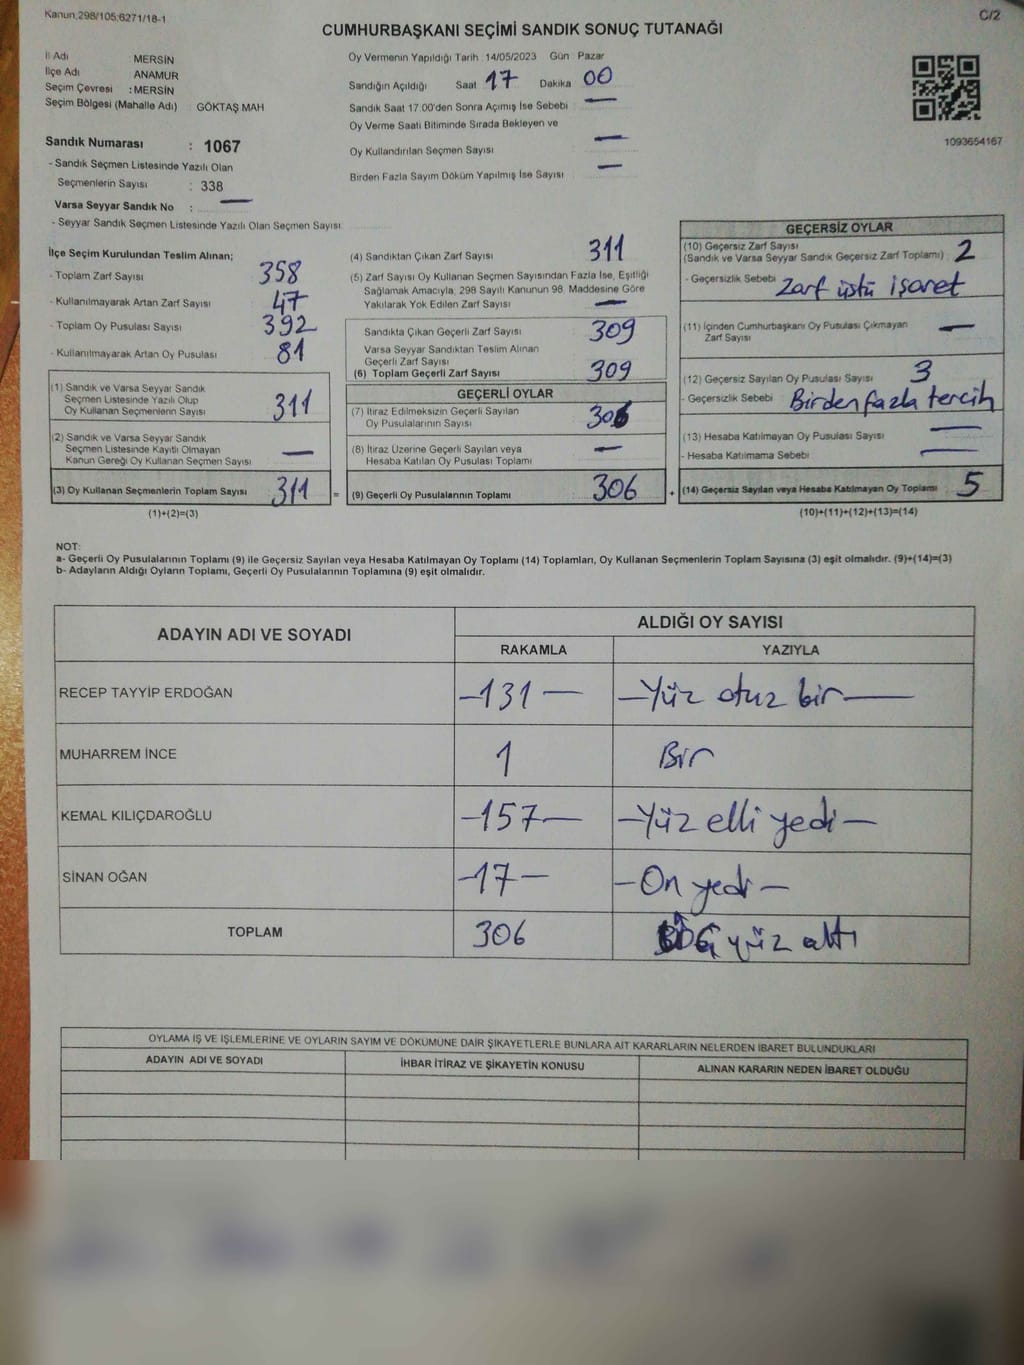 Kanun,298/105,6271/18-1
C/2
CUMHURBAŞKANI SEÇİMİ SANDIK SONUÇ TUTANAĞI
İl Adı MERSİN
İlçe Adı ANAMUR
Seçim Çevresi : MERSİN
Seçim Bölgesi (Mahalle Adı) : GÖKTAŞ MAH
Sandık Numarası : 1067
- Sandık Seçmen Listesinde Yazılı Olan
Seçmenlerin Sayısı : 338
Varsa Seyyar Sandık No : —
- Seyyar Sandık Seçmen Listesinde Yazılı Olan Seçmen Sayısı
Oy Vermenin Yapıldığı Tarih 14/05/2023 Gün Pazar
Sandığın Açıldığı Saat 17 Dakika 00
Sandık Saat 17.00'den Sonra Açımış İse Sebebi —
Oy Verme Saati Bitiminde Sırada Bekleyen ve
Oy Kullandırılan Seçmen Sayısı —
Birden Fazla Sayım Döküm Yapılmış İse Sayısı —
1093654167
İlçe Seçim Kurulundan Teslim Alınan;
- Toplam Zarf Sayısı 358
- Kullanılmayarak Artan Zarf Sayısı 47
- Toplam Oy Pusulası Sayısı 392
- Kullanılmayarak Artan Oy Pusulası 81
(1) Sandık ve Varsa Seyyar Sandık
Seçmen Listesinde Yazılı Olup
Oy Kullanan Seçmenlerin Sayısı 311
(2) Sandık ve Varsa Seyyar Sandık
Seçmen Listesinde Kayıtlı Olmayan
Kanun Gereği Oy Kullanan Seçmen Sayısı —
(3) Oy Kullanan Seçmenlerin Toplam Sayısı 311 =
(1)+(2)=(3)
(4) Sandıktan Çıkan Zarf Sayısı 311
(5) Zarf Sayısı Oy Kullanan Seçmen Sayısından Fazla İse, Eşitliği
Sağlamak Amacıyla, 298 Sayılı Kanunun 98. Maddesine Göre
Yakılarak Yok Edilen Zarf Sayısı —
Sandıkta Çıkan Geçerli Zarf Sayısı 309
Varsa Seyyar Sandıktan Teslim Alınan
Geçerli Zarf Sayısı
(6) Toplam Geçerli Zarf Sayısı 309
GEÇERLİ OYLAR
(7) İtiraz Edilmeksizin Geçerli Sayılan
Oy Pusulalarının Sayısı 306
(8) İtiraz Üzerine Geçerli Sayılan veya
Hesaba Katılan Oy Pusulası Toplamı —
(9) Geçerli Oy Pusulalarının Toplamı 306 +
GEÇERSİZ OYLAR
(10) Geçersiz Zarf Sayısı
(Sandık ve Varsa Seyyar Sandık Geçersiz Zarf Toplamı) 2
- Geçersizlik Sebebi Zarf üstü işaret
(11) İçinden Cumhurbaşkanı Oy Pusulası Çıkmayan
Zarf Sayısı —
(12) Geçersiz Sayılan Oy Pusulası Sayısı 3
- Geçersizlik Sebebi Birden fazla tercih
(13) Hesaba Katılmayan Oy Pusulası Sayısı —
- Hesaba Katılmama Sebebi —
(14) Geçersiz Sayılan veya Hesaba Katılmayan Oy Toplamı 5
(10)+(11)+(12)+(13)=(14)
NOT:
a- Geçerli Oy Pusulalarının Toplamı (9) ile Geçersiz Sayılan veya Hesaba Katılmayan Oy Toplamı (14) Toplamları, Oy Kullanan Seçmenlerin Toplam Sayısına (3) eşit olmalıdır. (9)+(14)=(3)
b- Adayların Aldığı Oyların Toplamı, Geçerli Oy Pusulalarının Toplamına (9) eşit olmalıdır.
ADAYIN ADI VE SOYADI
ALDIĞI OY SAYISI
RAKAMLA YAZIYLA
RECEP TAYYİP ERDOĞAN -131- -Yüz otuz bir-
MUHARREM İNCE 1 Bir
KEMAL KILIÇDAROĞLU -157- -Yüz elli yedi-
SİNAN OĞAN -17- -On yedi-
TOPLAM 306 yüz altı
OYLAMA İŞ VE İŞLEMLERİNE VE OYLARIN SAYIM VE DÖKÜMÜNE DAİR ŞİKAYETLERLE BUNLARA AİT KARARLARIN NELERDEN İBARET BULUNDUKLARI
ADAYIN ADI VE SOYADI İHBAR İTİRAZ VE ŞİKAYETİN KONUSU ALINAN KARARIN NEDEN İBARET OLDUĞU